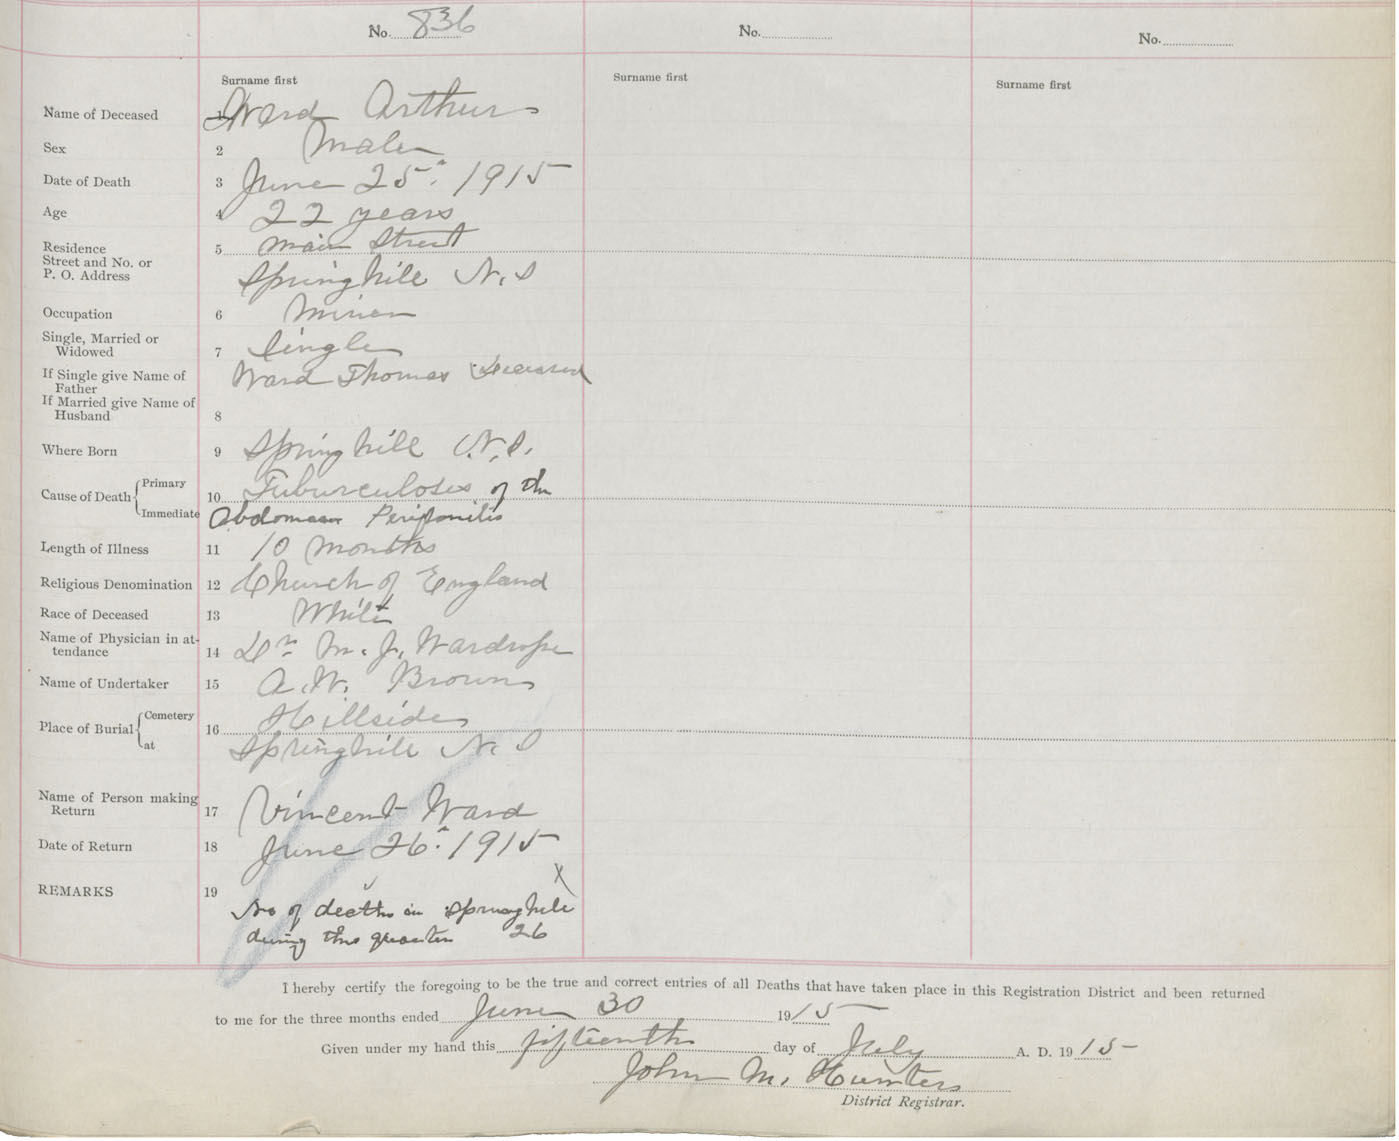 No. 836
No.
No.
Surname first
Surname first
Surname first
Name of Deceased 1 Ward Arthur
Sex 2 Male
Date of Death 3 June 25th 1915
Age 4 22 years
Residence 5 Main Street
Street and No. or
P. O. Address Springhill N.S
Occupation 6 Miner
Single, Married or
Widowed 7 Single
If Single give Name of Ward Thomas Deceased
Father
If Married give Name of
Husband 8
Where Born 9 Springhill N.S.
Cause of Death Primary 10 Tuburculoses of the
Immediate Abdomen Peritonitis
Length of Illness 11 10 months
Religious Denomination 12 Church of England
Race of Deceased 13 White
Name of Physician in at-
tendance 14 Dr M. J. Wardrope
Name of Undertaker 15 A. W. Brown
Place of Burial Cemetery 16 Hillside
at Springhill N. S
Name of Person making
Return 17 Vincent Ward
Date of Return 18 June 26th 1915
REMARKS 19 X
No of deaths in Springhill
during this quarter 26
I hereby certify the foregoing to be the true and correct entries of all Deaths that have taken place in this Registration District and been returned
to me for the three months ended June 30 1915
Given under my hand this fifteenth day of July A. D. 1915
John M. Hunter
District Registrar.